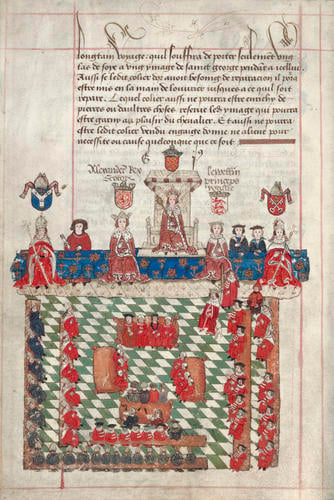 longtain voyage quil souffira de porter seulement ung
las de soye a ung ymage de sainct george pendant a icelluy
Aussi se ledit colier dor avoit besoing de reparacion il porra
estre mis en la main de louvrier jusques a ce quil soit
repare. Lequel colier aussi ne pourra estre enrichy de
pierres ou daultres choses reserve led ymage qui pourra
estre garny au plaisir du chevalier. Et aussi ne pourra
estre ledit colier vendu engaige donne ne aliene pour
necessite ou cause quelconque que ce soit
Alexander Rex
Scotorum
Lewellin
princeps
Wallie